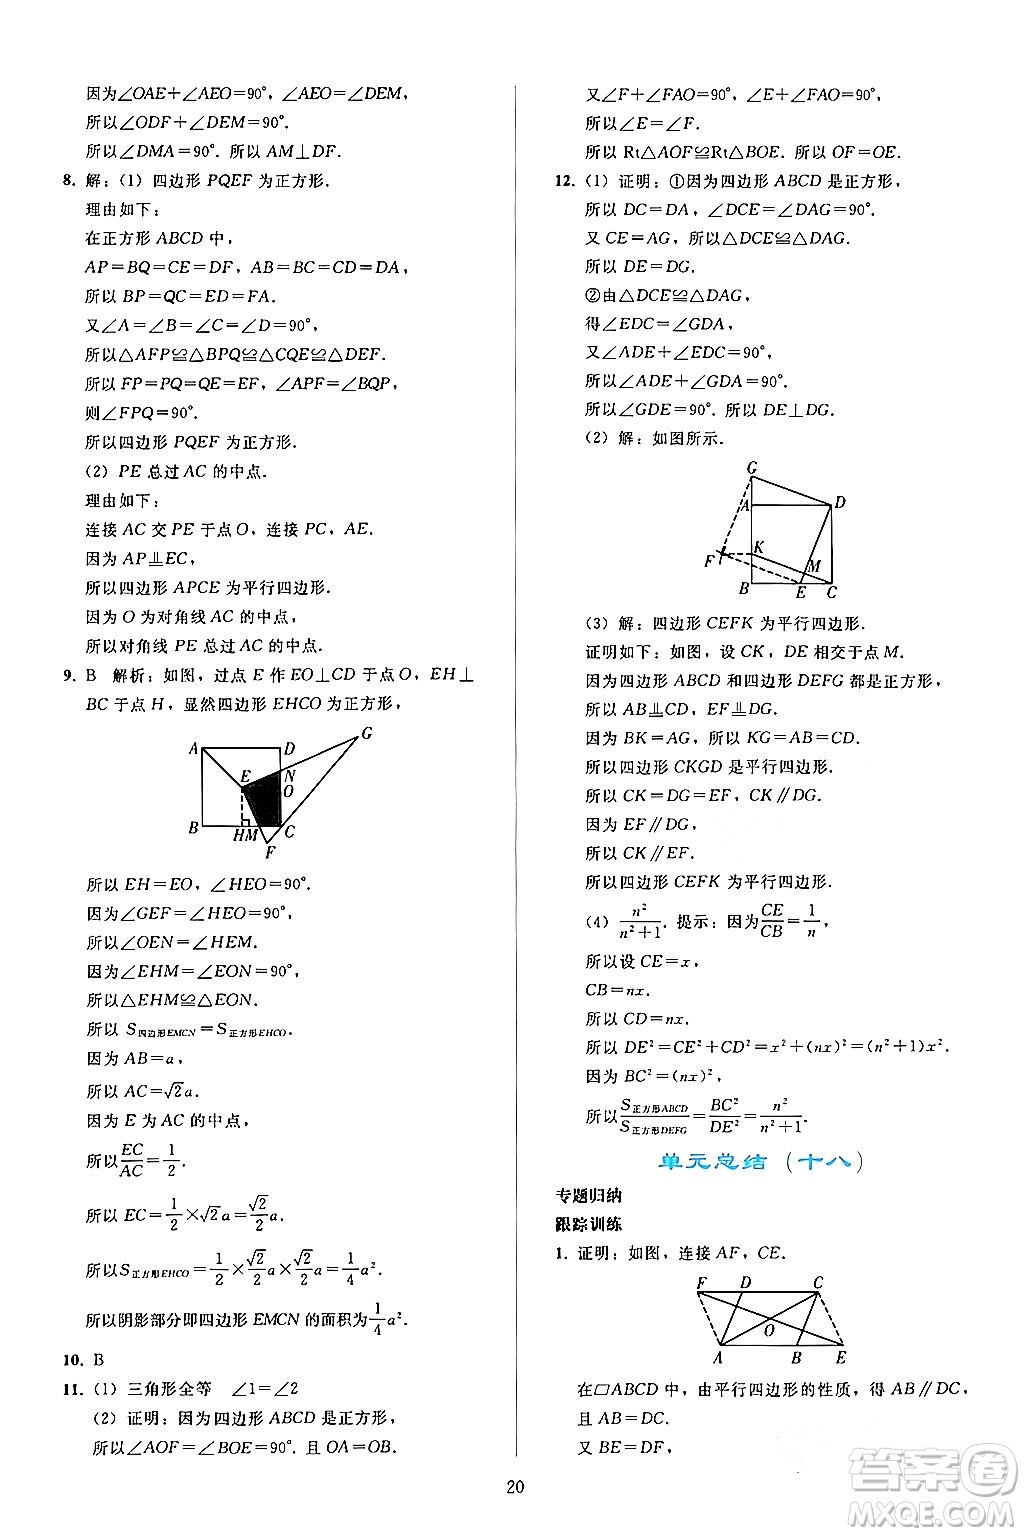 因为∠OAE+∠AEO=90°，∠AEO=∠DEM，
所以∠ODF+∠DEM=90°.
所以∠DMA=90°. 所以 AM⊥DF.
8. 解：(1) 四边形 PQEF 为正方形.
理由如下：
在正方形 ABCD 中，
AP=BQ=CE=DF，AB=BC=CD=DA，
所以 BP=QC=ED=FA.
又∠A=∠B=∠C=∠D=90°，
所以△AFP≌△BPQ≌△CQE≌△DEF.
所以 FP=PQ=QE=EF，∠APF=∠BQP.
则∠FPQ=90°.
所以四边形 PQEF 为正方形.
(2) PE 总过 AC 的中点.
理由如下：
连接 AC 交 PE 于点 O，连接 PC，AE.
因为 AP⫫EC，
所以四边形 APCE 为平行四边形.
因为 O 为对角线 AC 的中点，
所以对角线 PE 总过 AC 的中点.
9. B 解析：如图，过点 E 作 EO⊥CD 于点 O，EH⊥
BC 于点 H，显然四边形 EHCO 为正方形，
G
A D
E N
O
B HM C
F
所以 EH=EO，∠HEO=90°.
因为∠GEF=∠HEO=90°，
所以∠OEN=∠HEM.
因为∠EHM=∠EON=90°，
所以△EHM≌△EON.
所以 S四边形EMCN=S正方形EHCO.
因为 AB=a，
所以 AC=√2a.
因为 E 为 AC 的中点，
所以 EC/AC=1/2.
所以 EC=1/2×√2a=√2/2a.
所以S正方形EHCO=1/2×√2/2a×√2/2a=1/4a².
所以阴影部分即四边形 EMCN 的面积为1/4a².
10. B
11. (1) 三角形全等 ∠1=∠2
(2) 证明：因为四边形 ABCD 是正方形，
所以∠AOF=∠BOE=90°. 且 OA=OB.
又∠F+∠FAO=90°，∠E+∠FAO=90°，
所以∠E=∠F.
所以 Rt△AOF≌Rt△BOE. 所以 OF=OE.
12. (1) 证明：①因为四边形 ABCD 是正方形，
所以 DC=DA，∠DCE=∠DAG=90°.
又 CE=AG，所以△DCE≌△DAG.
所以 DE=DG.
②由△DCE≌△DAG，
得∠EDC=∠GDA，
又∠ADE+∠EDC=90°，
所以∠ADE+∠GDA=90°.
所以∠GDE=90°. 所以 DE⊥DG.
(2) 解：如图所示.
G
A D
F K M
B E C
(3) 解：四边形 CEFK 为平行四边形.
证明如下：如图，设 CK，DE 相交于点 M.
因为四边形 ABCD 和四边形 DEFG 都是正方形，
所以 AB⫫CD，EF⫫DG.
因为 BK=AG，所以 KG=AB=CD.
所以四边形 CKGD 是平行四边形.
所以 CK=DG=EF，CK∥DG.
因为 EF∥DG，
所以 CK∥EF.
所以四边形 CEFK 为平行四边形.
(4) n²/(n²+1). 提示：因为CE/CB=1/n，
所以设 CE=x，
CB=nx.
所以 CD=nx.
所以 DE²=CE²+CD²=x²+(nx)²=(n²+1)x².
因为 BC²=(nx)²，
所以S正方形ABCD/S正方形DEFG=BC²/DE²=n²/(n²+1).
单元总结（十八）
专题归纳
跟踪训练
1. 证明：如图，连接 AF，CE.
F D C
O
A B E
在▱ABCD 中，由平行四边形的性质，得 AB∥DC，
且 AB=DC.
又 BE=DF，
20
答案卷
MXQE.COM